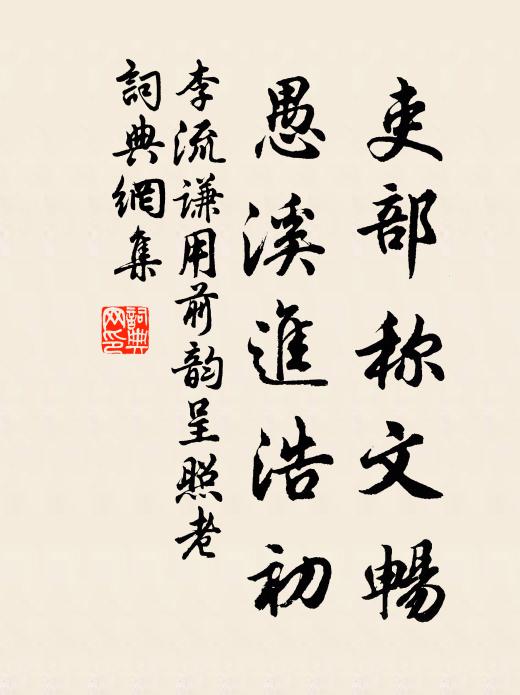 吏部称文暢
愚溪進浩初
李流谦用前韵呈照老
詞典網集
詞典网印